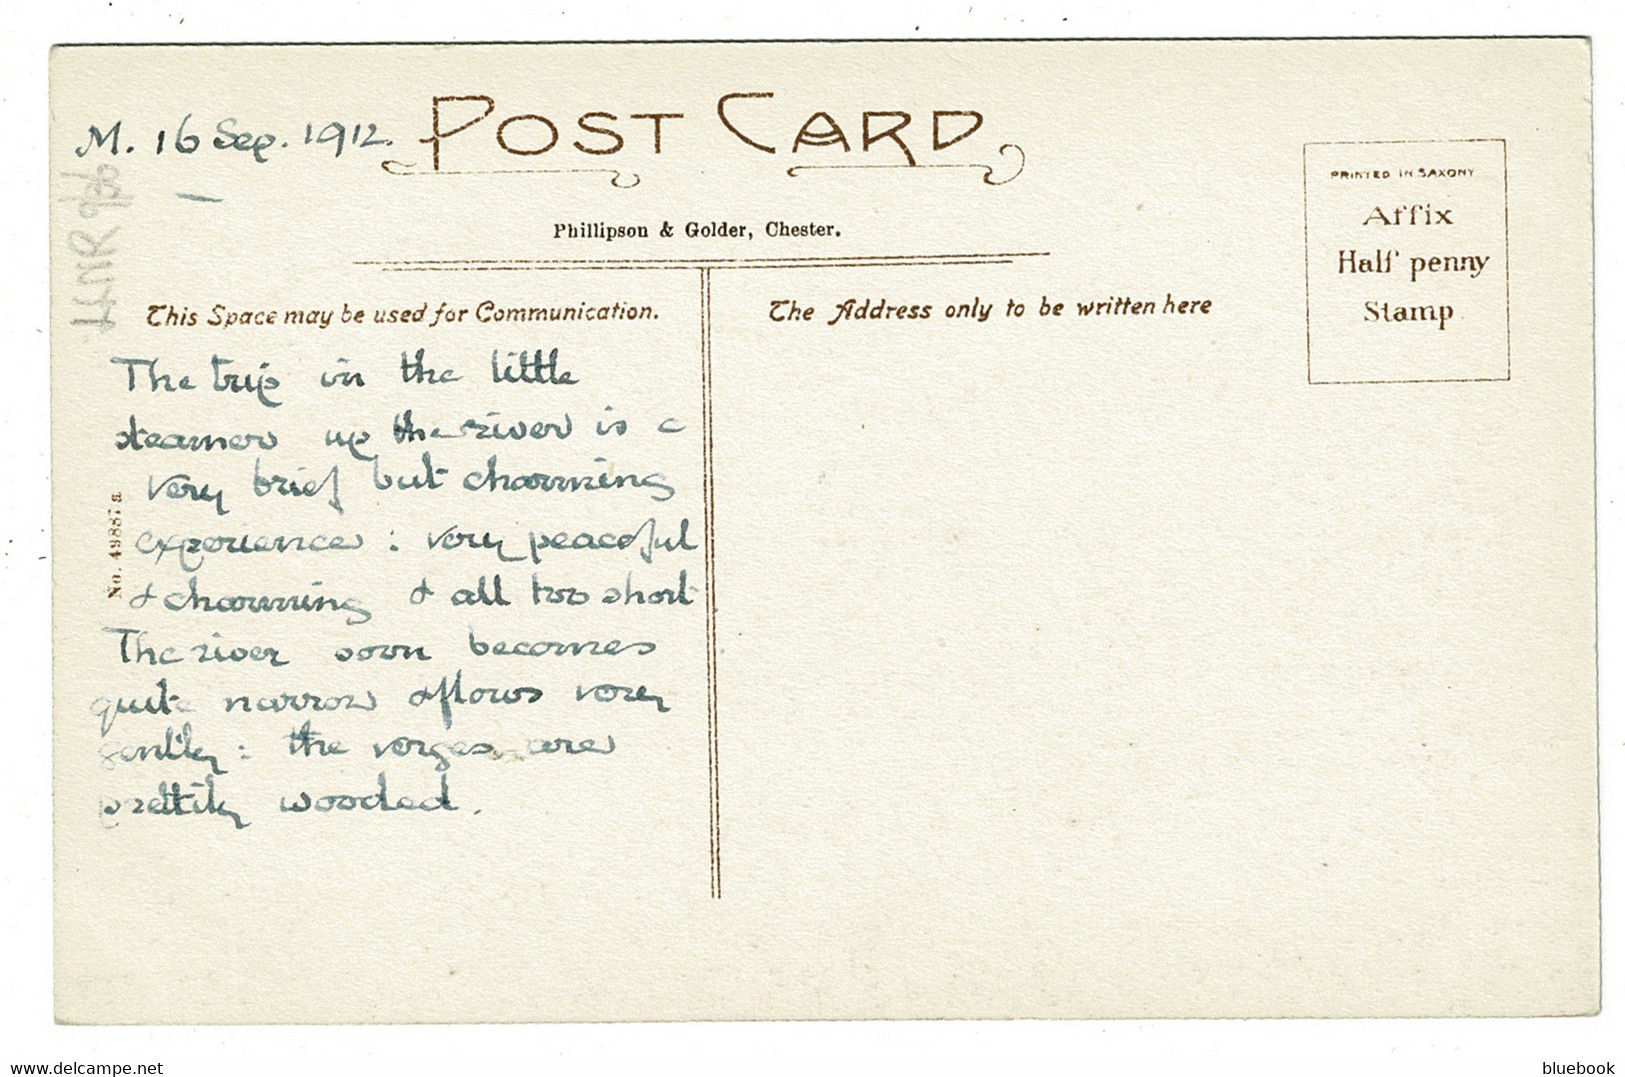 M. 16 Sep. 1912.
POST CARD
Phillipson & Golder, Chester.
PRINTED IN SAXONY
Affix
Half penny
Stamp
This Space may be used for Communication.
The Address only to be written here
The trip in the little
steamer up the river is a
very brief but charming
experience : very peaceful
& charming & all too short
The river soon becomes
quite narrow & flows very
gently : the verges are
prettily wooded.
No. 49887a
www.delcampe.net
bluebook